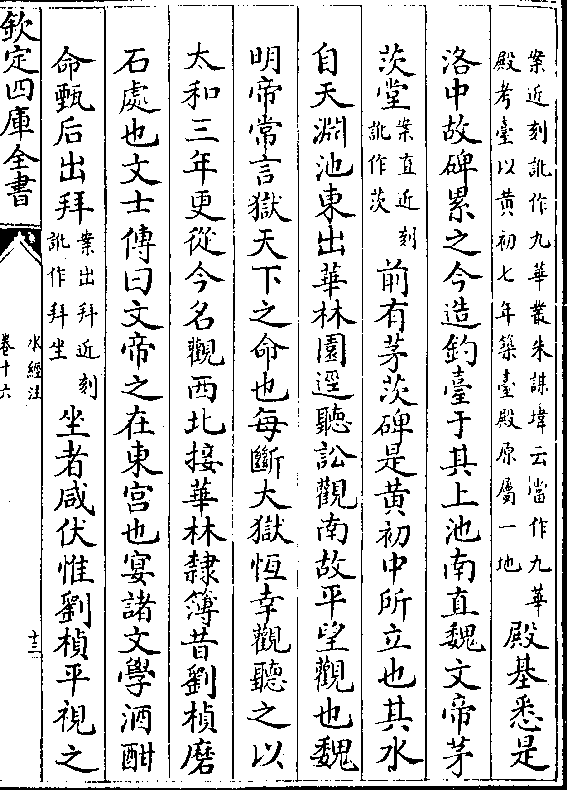 案近刻訛作九華叢朱謀㙔云當作九華
殿考臺以黃初七年築臺殿原屬一地
殿基悉是
洛中故碑累之今造釣臺于其上池南直魏文帝茅
茨堂
案直近刻
訛作茨
前有茅茨碑是黃初中所立也其水
自天淵池東出華林園逕聽訟觀南故平望觀也魏
明帝常言獄天下之命也每斷大獄恆幸觀聽之以
太和三年更從今名觀西北接華林隸簿昔劉楨磨
石處也文士傳曰文帝之在東宮也宴諸文學酒酣
命甄后出拜
案出拜近刻
訛作拜坐
坐者咸伏惟劉楨平視之
欽定四庫全書
水經注
卷十六
十三